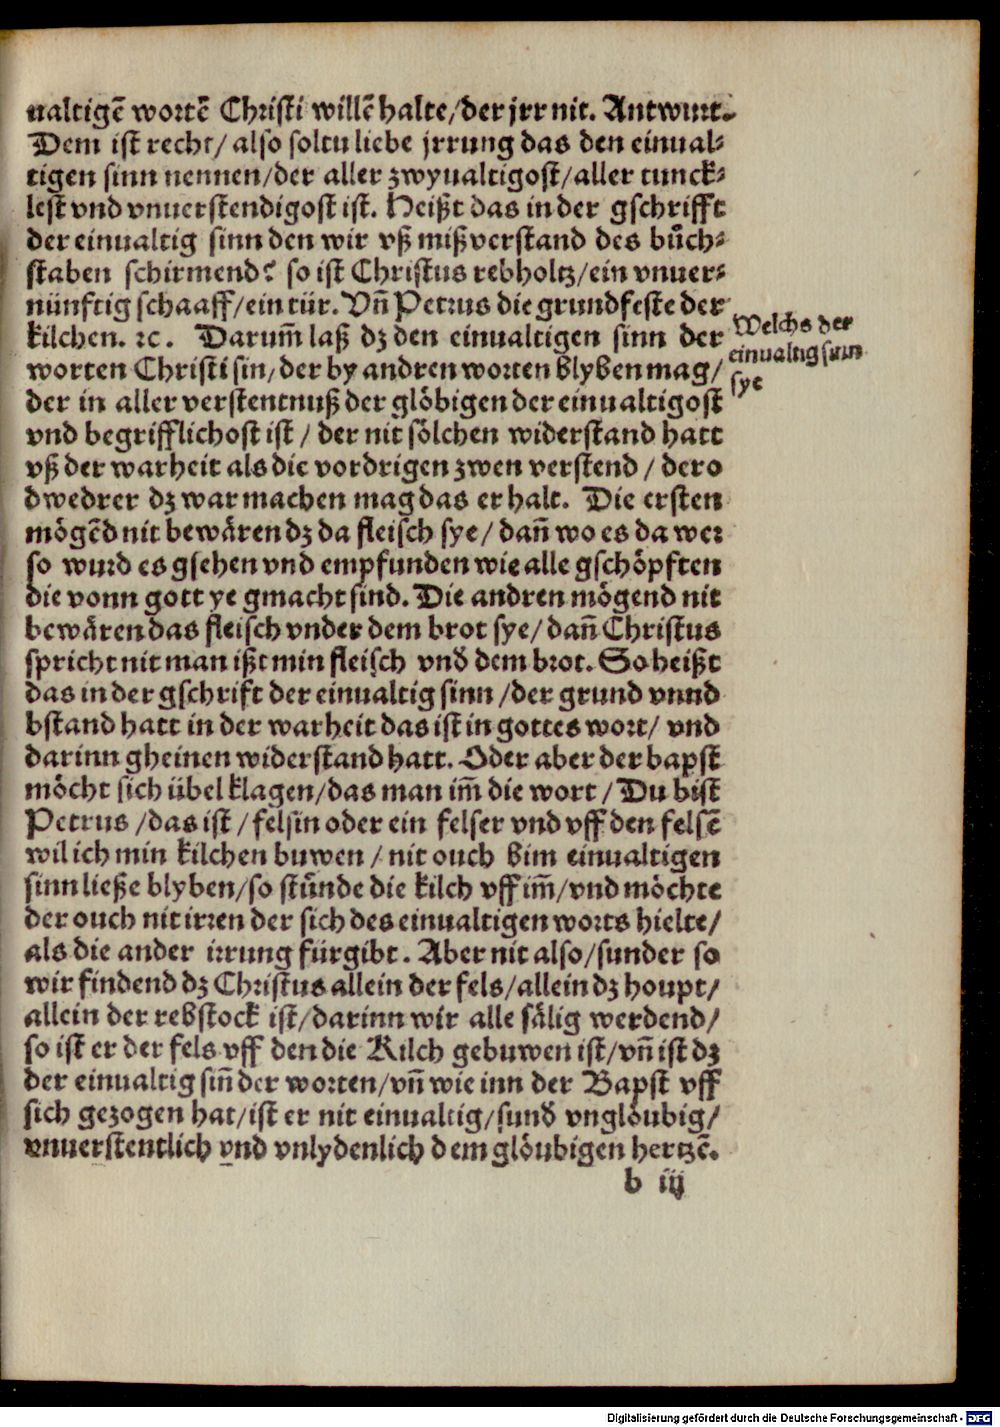 ualtigē wortē Christi willē halte/der jrr nit. Antwurt.
Dem ist recht/ also soltu liebe jrrung das den einual⸗
tigen sinn nennen/der aller zwyualtigost/aller tunck⸗
lest vnd vnuerstendigost ist. Heißt das in der gschrifft
der einualtig sinn den wir vß mißverstand des bůch⸗
staben schirmend? so ist Christus rebholtz/ein vnuer⸗
nünftig schaaff/ein tür. Vn̄ Petrus die grundfeste der
kilchen. ꝛc. Darum̄ laß dz den einualtigen sinn der
worten Christi sin/der by andren worten blyben mag/
der in aller verstentnuß der glöbigen der einualtigost
vnd begrifflichost ist / der nit sölchen widerstand hatt
vß der warheit als die vordrigen zwen verstend / dero
dwedrer dz war machen mag das er halt. Die ersten
mögēd nit bewären dz da fleisch sye / dan̄ wo es da wer
so wurd es gsehen vnd empfunden wie alle gschöpften
die vonn gott ye gmacht sind. Die andren mögend nit
bewären das fleisch vnder dem brot sye/ dan̄ Christus
spricht nit man ißt min fleisch vnď dem brot. So heißt
das in der gschrift der einualtig sinn /der grund vnnd
bstand hatt in der warheit das ist in gottes wort/ vnd
darinn gheinen widerstand hatt. Oder aber der bapst
möcht sich übel klagen/das man im̄ die wort / Du bist
Petrus /das ist / felsin oder ein felser vnd vff den felsē
wil ich min kilchen buwen / nit ouch bim einualtigen
sinn ließe blyben/so stünde die kilch vff im̄/vnd möchte
der ouch nit irren der sich des einualtigen worts hielte/
als die ander irrung fürgibt. Aber nit also/sunder so
wir findend dz Christus allein der fels/allein dz houpt/
allein der rebstock ist/darinn wir alle sälig werdend/
so ist er der fels vff den die Kilch gebuwen ist/vn̄ ist dz
der einualtig sin̄ der worten/vn̄ wie inn der Bapst vff
sich gezogen hat/ist er nit einualtig/sunď vnglöubig/
vnuerstentlich vnd vnlydenlich dem glöubigen hertzē.
b iij
Welchs der
einualtig sinn
sye
Digitalisierung gefördert durch die Deutsche Forschungsgemeinschaft - DFG